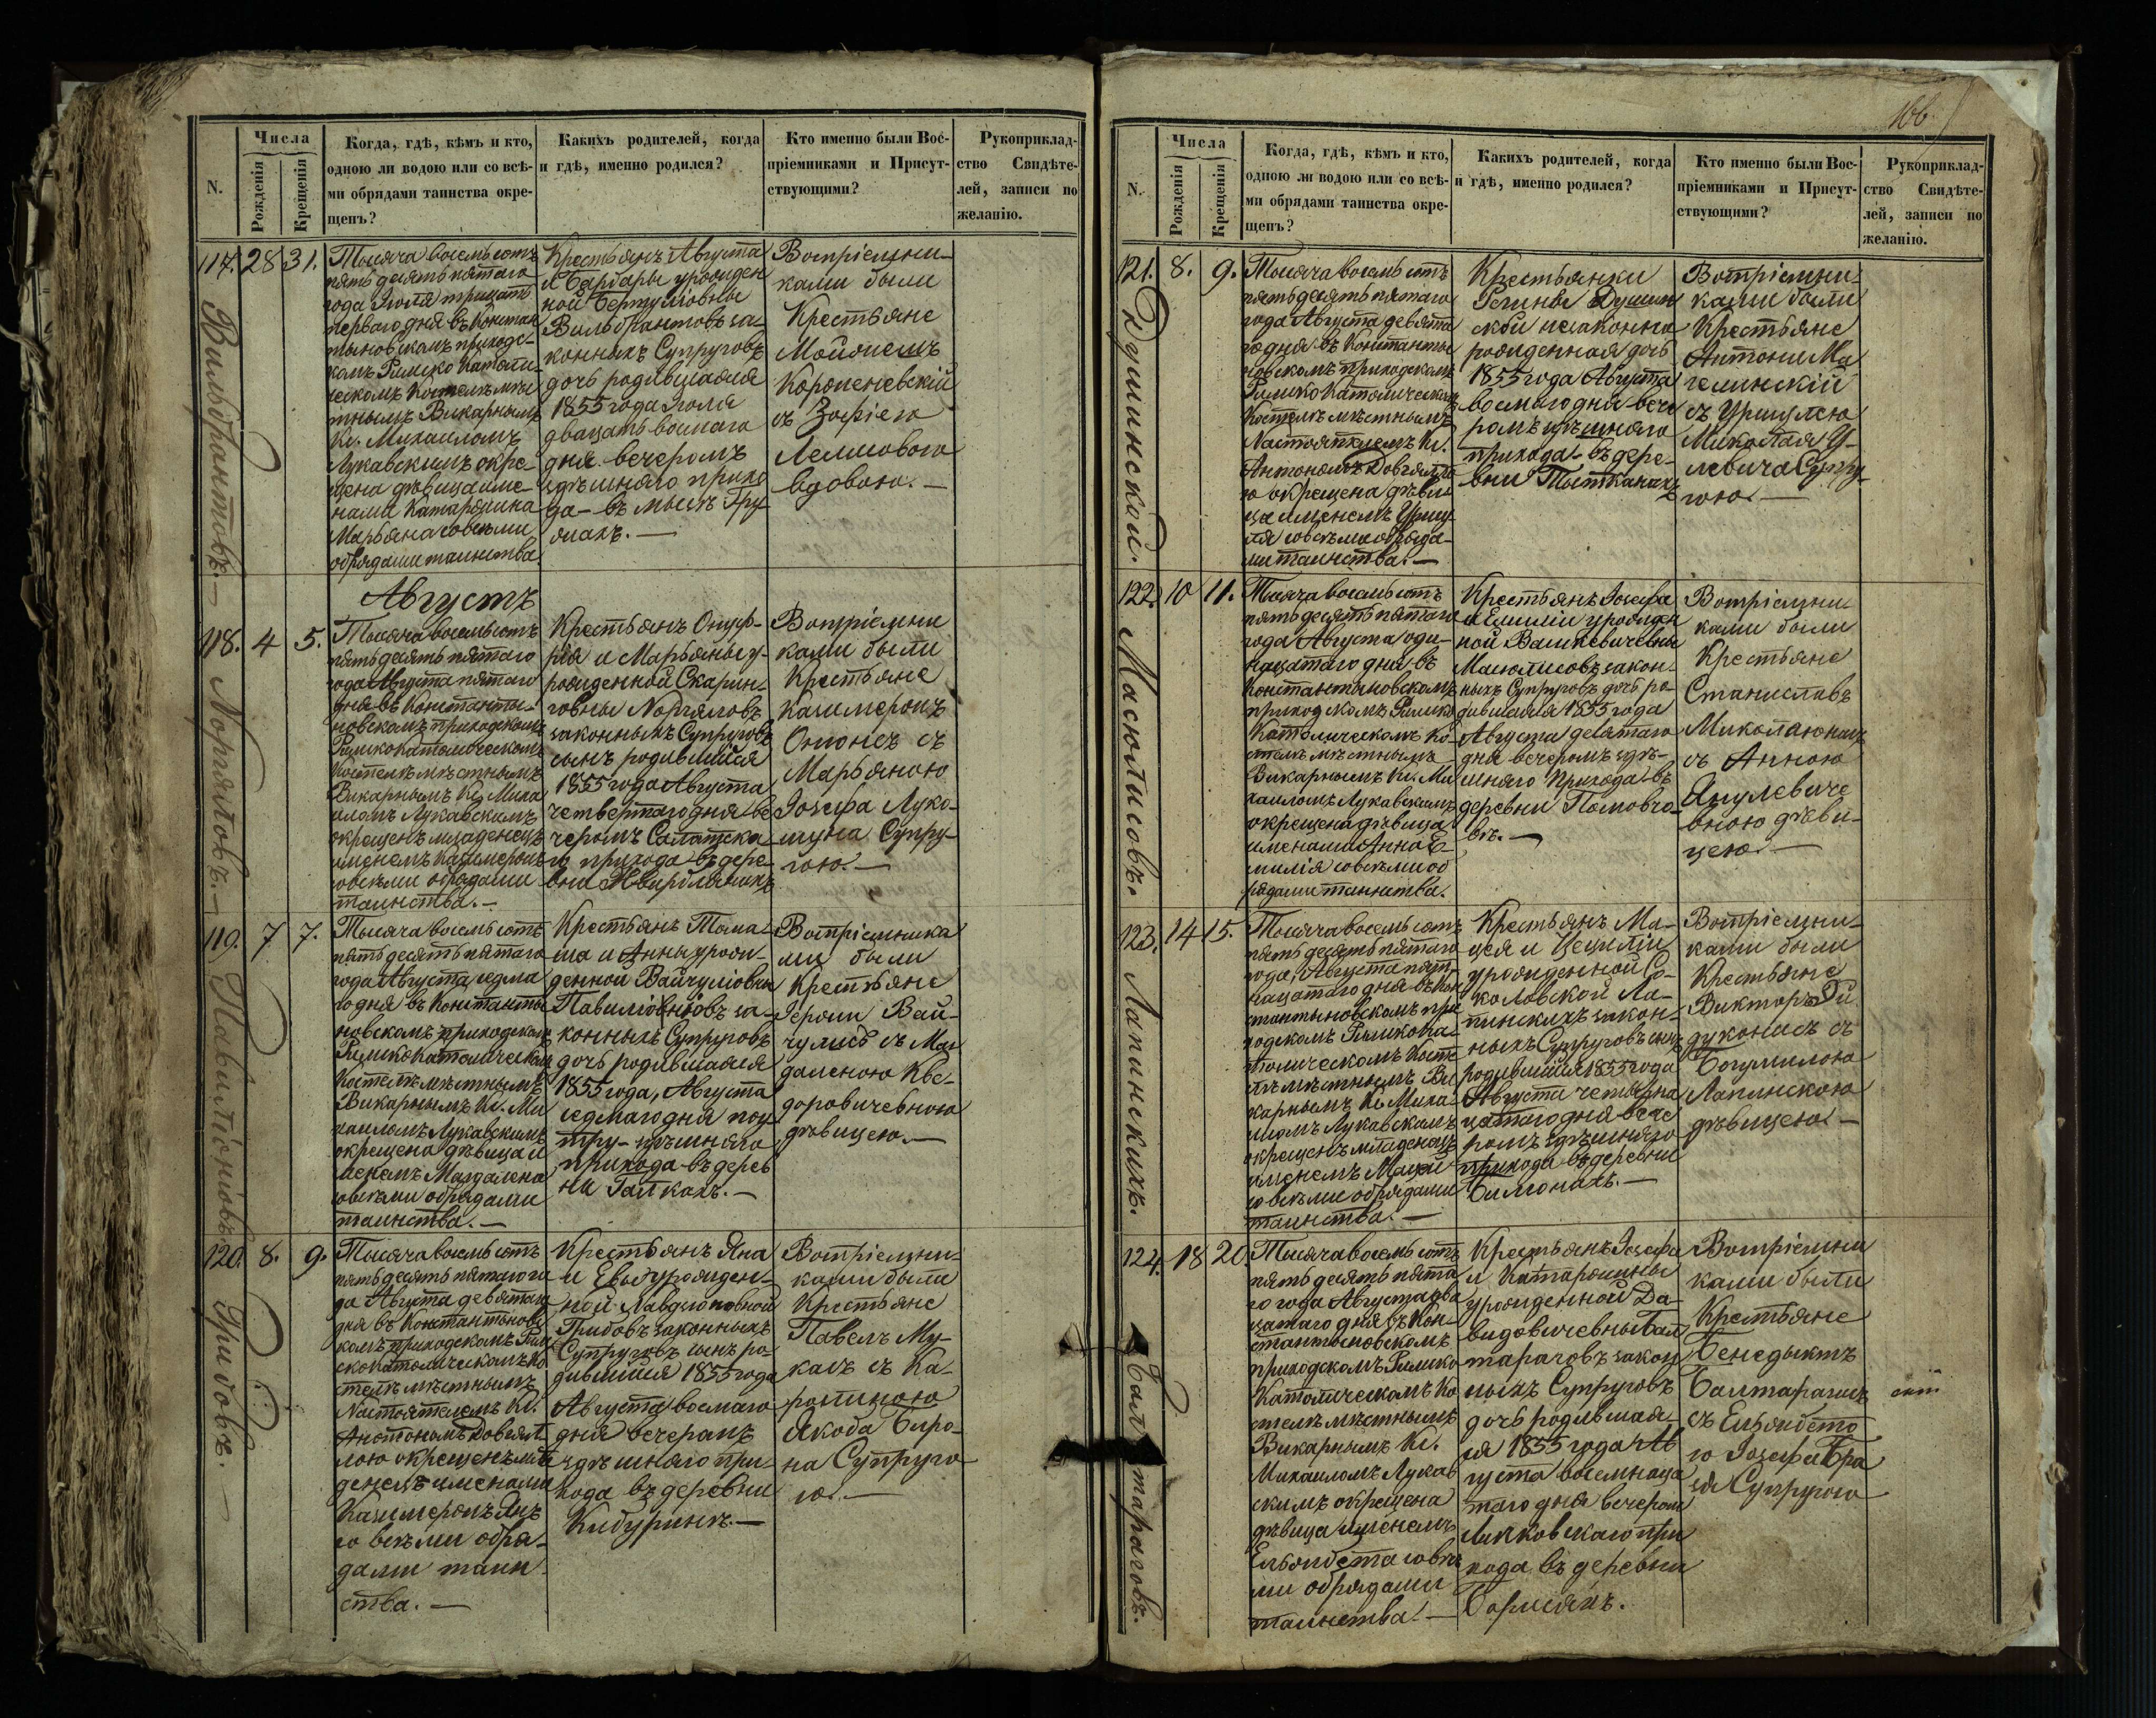 166.
N.
Числа
Рожденія
Крещенія
Когда, гдѣ, кѣмъ и кто,
одною ли водою или со всѣ-
ми обрядами таинства окре-
щенъ?
Какихъ родителей, когда
и гдѣ, именно родился?
Кто именно были Вос-
пріемниками и Присут-
ствующими?
Рукоприклад-
ство Свидѣте-
лей, записи по
желанію.
117. 28 31.
Вильбрантовъ.—
Тысяча восемь сотъ
пять десять пятаго
года Іюля тридцать
перваго дня въ Констан
тыновскомъ приходс-
комъ Римско Католи-
ческомъ Костелѣ мѣс
тнымъ Викарнымъ
Кс. Михаиломъ
Лукавскимъ окре-
щена дѣвица име-
нами Катарзина
Марьяна со всѣми
обрядами таинства.
Крестьянъ Августа
и Барбары урожден
ной
Вильбрантовъ за-
конныхъ Супруговъ
дочь родившаяся
1855 года Іюля
двадцать восмаго
дня вечеромъ
здѣшняго прихо
да— въ мысѣ Гру-
жахъ.—
Вотріемни-
ками были
Крестьяне
съ Зофіею
вдовою.—
Августъ
118. 4 5.
Норгяловъ.—
Тысяча восемь сотъ
пять десять пятаго
года Августа пятаго
дня въ Константы-
новскомъ приходскомъ
Римско католическомъ
Костелѣ мѣстнымъ
Викарнымъ Кс. Миха
иломъ Лукавскимъ
окрещенъ младенецъ
именемъ Казимеромъ
со всѣми обрядами
таинства.—
Крестьянъ Онуф-
рія и Марьяны у-
рожденной Скарин-
говны Норгяловъ
законныхъ Супруговъ
сынъ родившійся
1855 года Августа
четвертаго дня ве
черомъ
го прихода въ дере-
вни
Вотріемни
ками были
Крестьяне
Казимеромъ
съ
Марьяною
Іозефа Луко-
шуна Супру-
гою.—
119. 7 7.
Павилiонiовъ.
Тысяча восемь сотъ
пять десять пятаго
года Августа седма
го дня въ Константы
новскомъ приходскомъ
Римско Католическомъ
Костелѣ мѣстнымъ
Викарнымъ Кс. Ми
хаиломъ Лукавскимъ
окрещена дѣвица и
менемъ Магдалена
со всѣми обрядами
таинства.—
Крестьянъ Тома-
ша и Анны урож-
денной Вайчулiовны
за-
конныхъ Супруговъ
дочь родившаяся
1855 года, Августа
седмаго дня поу
тру— здѣшняго
прихода въ дерев
ни Галкахъ.—
Вотріемника
ми были
Крестьяне
Героним Вай-
чулисъ съ Маг
даленою Кве-
доровичевною
дѣвицею.—
120. 8. 9.
Грибовъ.—
Тысяча восемь сотъ
пять десять пятаго го
да Августа девятаго
дня въ Константыновс
комъ приходскомъ Рим
ско Католическомъ Ко
стелѣ мѣстнымъ
Настоятелемъ Кс.
Антономъ Довгял
лою окрещенъ мла
денецъ именами
Казимеромъ Янъ
со всѣми обря-
дами таин
ства.—
Крестьянъ Яна
и Евы урожден-
ной
Грибовъ законныхъ
Супруговъ сынъ ро-
дившійся 1855 года
Августа восмаго
дня вечеромъ
здѣшняго при-
хода въ деревни
Кибуринъ.—
Вотріемни-
ками были
Крестьяне
Павелъ Му-
касъ съ Ка-
ролиною
Якоба Биро-
на Супруго
ю.—
N.
Числа
Рожденія
Крещенія
Когда, гдѣ, кѣмъ и кто,
одною ли водою или со всѣ-
ми обрядами таинства окре-
щенъ?
Какихъ родителей, когда
и гдѣ, именно родился?
Кто именно были Вос-
пріемниками и Присут-
ствующими?
Рукоприклад-
ство Свидѣте-
лей, записи по
желанію.
121. 8. 9.
Душинской.
Тысяча восемь сотъ
пять десять пятаго
года Августа девята
го дня въ Константы
новскомъ приходскомъ
Римско Католическомъ
Костелѣ мѣстнымъ
Настоятелемъ Кс.
Антономъ Довгялло
ю окрещена дѣви
ца именемъ Уршу
ля со всѣми обряда-
ми таинства.—
Крестьянки
Регины Душин
ской незаконно
рожденная дочь
1855 года Августа
восмаго дня вече
ромъ здѣшняго
прихода— въ дере-
вни Тытканахъ
Вотріемни-
ками были
Крестьяне
Антони Ма
гелинскій
съ Уршулею
Миколая У-
левича Супру-
гою.—
122. 10 11.
Масюлисовъ.
Тысяча восемь сотъ
пять десять пятаго
года Августа оди-
надцатаго дня въ
Константыновскомъ
приходскомъ Римско
Католическомъ Ко-
стелѣ мѣстнымъ
Викарнымъ Кс. Ми
хаиломъ Лукавскимъ
окрещена дѣвица
именами Анна Е-
милія со всѣми об
рядами таинства.
Крестьянъ Іозефа
и Емиліи урожден
ной Вашкевичевны
Масюлисовъ закон-
ныхъ Супруговъ дочь ро-
дившаяся 1855 года
Августа десятаго
дня вечеромъ здѣ-
шняго Прихода въ
деревни
Вотріемни
ками были
Крестьяне
Станиславъ
съ Анною
Янулевиче
вною дѣви-
цею.—
123. 14 15.
Лапинскихъ.
Тысяча восемь сотъ
пять десять пятаго
года, Августа пят-
надцатаго дня въ Кон
стантыновскомъ при
ходскомъ Римско ка-
толическомъ Косте
лѣ мѣстнымъ Ви
карнымъ Кс. Миха
иломъ Лукавскимъ
окрещенъ младенецъ
именемъ Мацей
со всѣми обрядами
таинства.—
Крестьянъ Ма-
цея и Цециліи
урожденной Со-
коловской Ла-
пинскихъ закон-
ныхъ Супруговъ сынъ
родившійся 1855 года
Августа четырна
цатаго дня вече
ромъ здѣшняго
прихода въ деревни
Билюнахъ.—
Вотріемни-
ками были
Крестьяне
Викторъ Ги
дуконисъ съ
Богумилою
Лапинскою
дѣвицею.—
124. 18 20.
Балтараговъ.
Тысяча восемь сотъ
пять десять пята
го года Августа два
цатаго дня въ Кон-
стантыновскомъ
приходскомъ Римско
Католическомъ Ко
стелѣ мѣстнымъ
Викарнымъ Кс.
Михаиломъ Лукав
скимъ окрещена
дѣвица именемъ
Ельжбета со всѣ
ми обрядами
таинства.—
Крестьянъ Іозефа
и Катарзины
урожденной Да-
видовичевны Бал
тараговъ закон
ныхъ Супруговъ
дочь родившая-
ся 1855 года Ав
густа восемнадца
таго дня вечеромъ
прихода въ деревни
Вотріемни
ками были
Крестьяне
Бенедыктъ
Балтарагисъ
съ Ельжбето
ю Іозефа Бра
зя Супругою